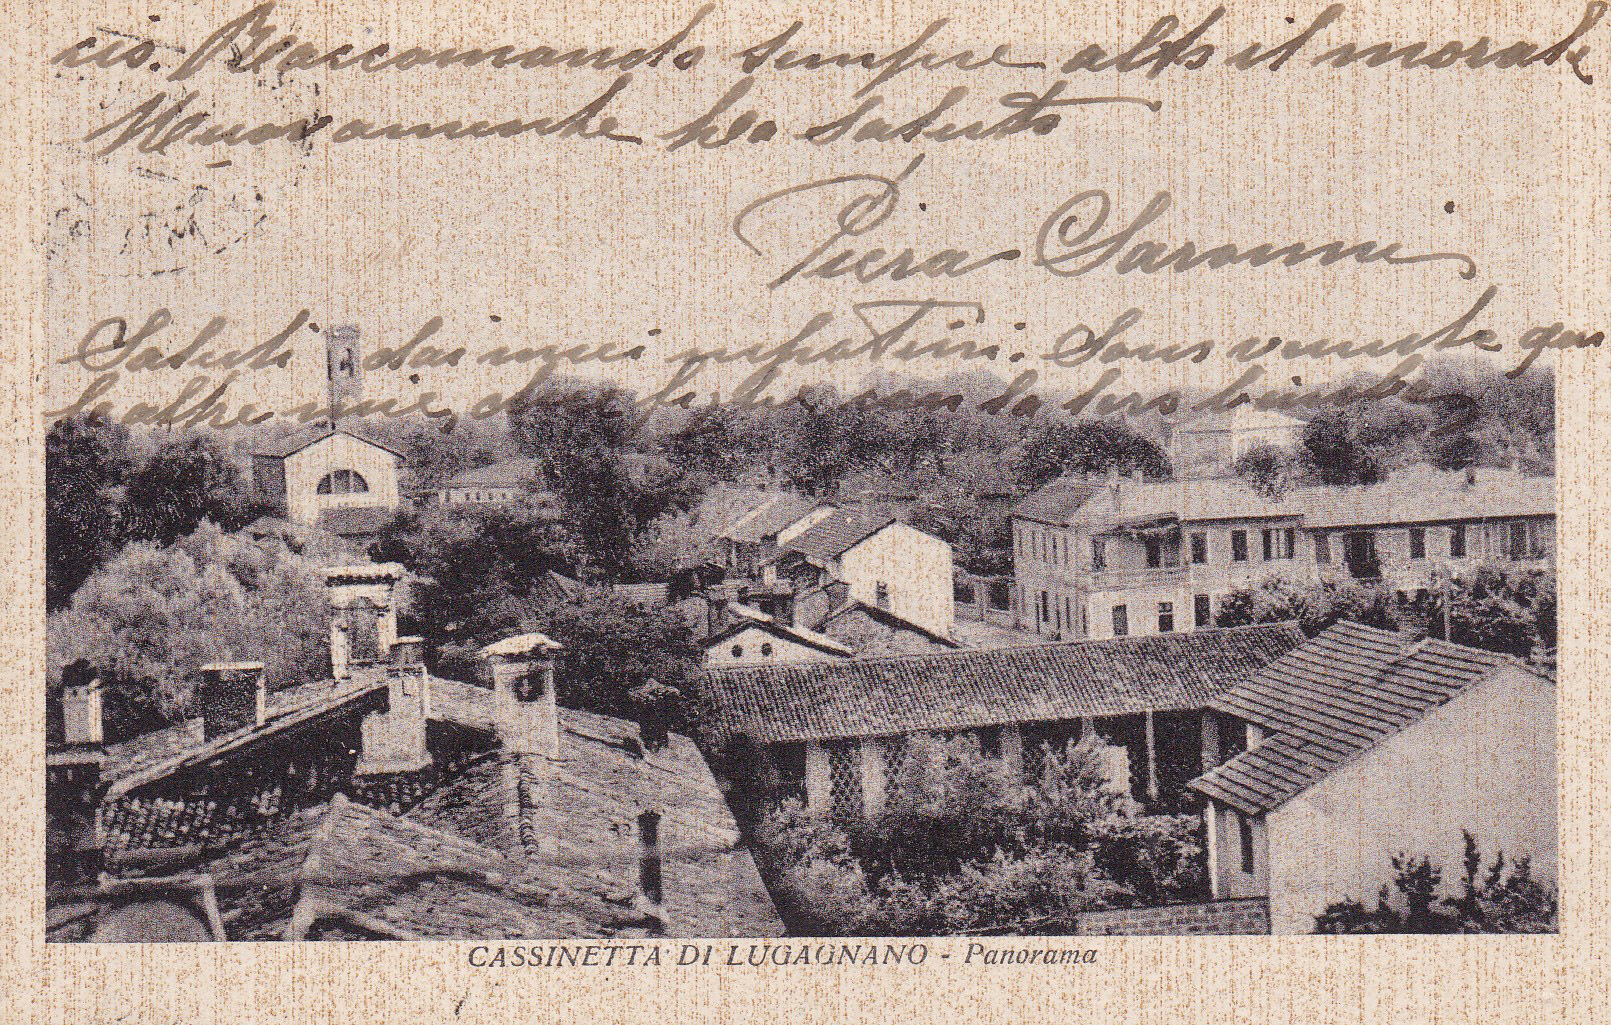 cis. Raccomando sempre alto il morale
Nuovamente la saluto
Piera Saronni
Saluti dai miei nipotini. Sono venute qui
le altre mie, due con la loro
CASSINETTA DI LUGAGNANO - Panorama